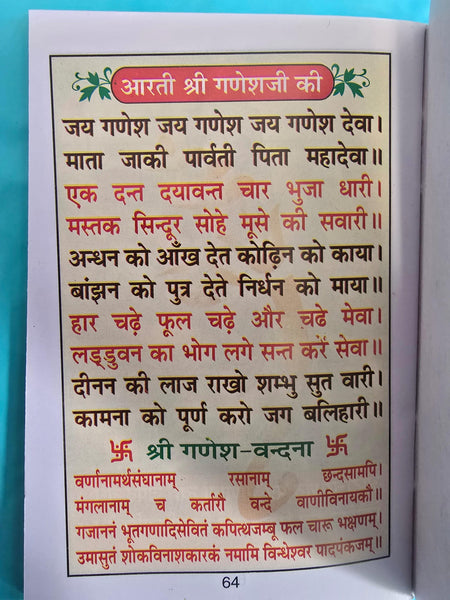 आरती श्री गणेशजी की
जय गणेश जय गणेश जय गणेश देवा।
माता जाकी पार्वती पिता महादेवा॥
एक दन्त दयावन्त चार भुजा धारी।
मस्तक सिन्दूर सोहे मूसे की सवारी॥
अन्धन को आँख देत कोढ़िन को काया।
बांझन को पुत्र देते निर्धन को माया॥
हार चढ़े फूल चढ़े और चढे मेवा।
लड्डुवन का भोग लगे सन्त करें सेवा॥
दीनन की लाज राखो शम्भु सुत वारी।
कामना को पूर्ण करो जग बलिहारी॥
श्री गणेश-वन्दना
वर्णानामर्थसंघानाम् रसानाम् छन्दसामपि।
मंगलानाम् च कर्तारौ वन्दे वाणीविनायकौ॥
गजाननं भूतगणादिसेवितं कपित्थजम्बू फल चारू भक्षणम्।
उमासुतं शोकविनाशकारकं नमामि विन्धेश्वर पादपंकजम्॥
64